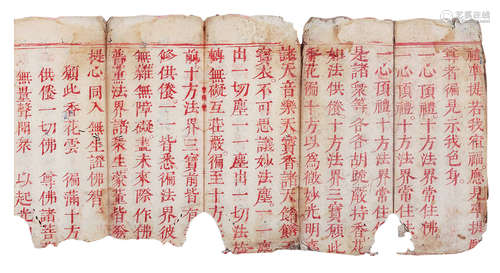 禮準提若我福應是準提
尊者徧見示我色身
一心頂禮十方法界常住佛
一心頂禮十方法界常住
一心頂禮十方法界常住
是諸眾等各各胡跪嚴持香花
如法供養十方法界三寶願此
香花徧十方以為微妙光明
諸天音樂天寶香諸天餚饍
寶衣不可思議妙法塵一一塵
出一切塵一一塵出一切法
轉無礙互莊嚴徧至十方
前十方法界三寶前皆有
修供養一一皆悉徧法界彼
無雜無障礙盡未來際作佛
普熏法界諸眾生蒙熏皆發
提心同入無生證佛智
願此香花雲 徧滿十方
供養一切佛 尊佛諸菩
無量聲聞眾 以起光